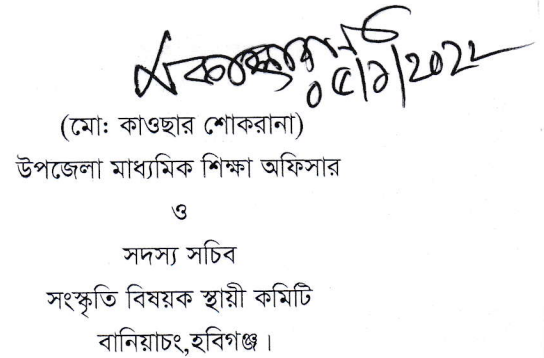 ০৫/১/2022
(মো: কাওছার শোকরানা)
উপজেলা মাধ্যমিক শিক্ষা অফিসার
ও
সদস্য সচিব
সংস্কৃতি বিষয়ক স্থায়ী কমিটি
বানিয়াচং,হবিগঞ্জ।